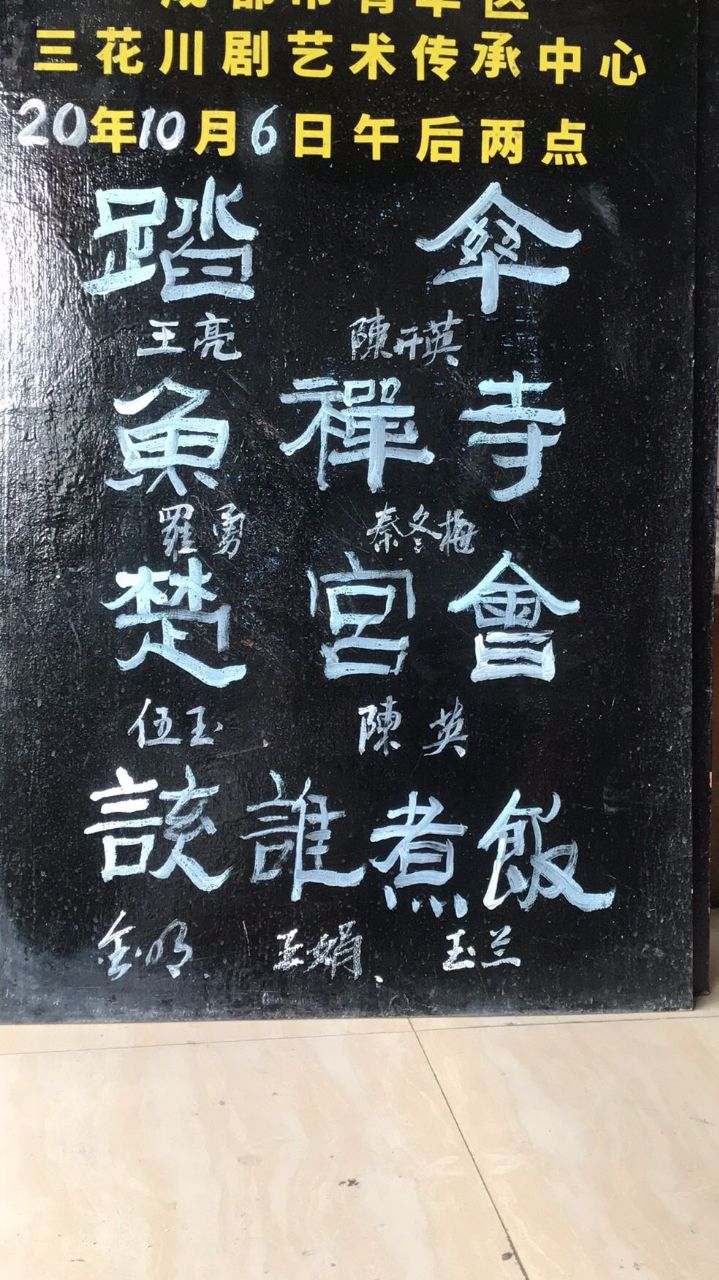 成都市青羊区
三花川剧艺术传承中心
20年10月6日午后两点
踏 傘
王亮 陳开英
魚 禪 寺
羅勇 秦冬梅
楚 宮 會
伍玉 陳英
該誰煮飯
金明 王娟 玉兰